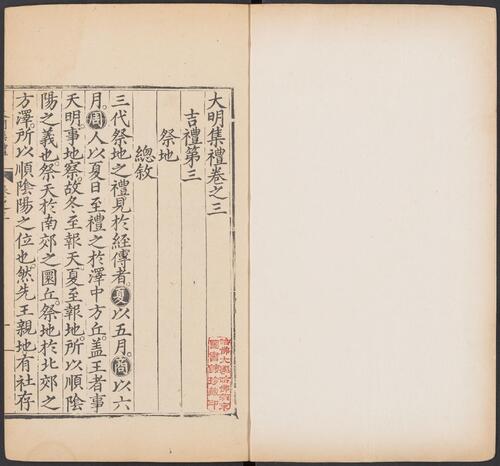 大明集禮卷之三
吉禮第三
祭地
總敘
三代祭地之禮見於經傳者。夏以五月。商以六
月。周人以夏日至禮之於澤中方丘。盖王者事
天明。事地察。故冬至報天。夏至報地。所以順陰
陽之義也。祭天於南郊之圜丘。祭地於北郊之
方澤。所以順陰陽之位也。然先王親地。有社存